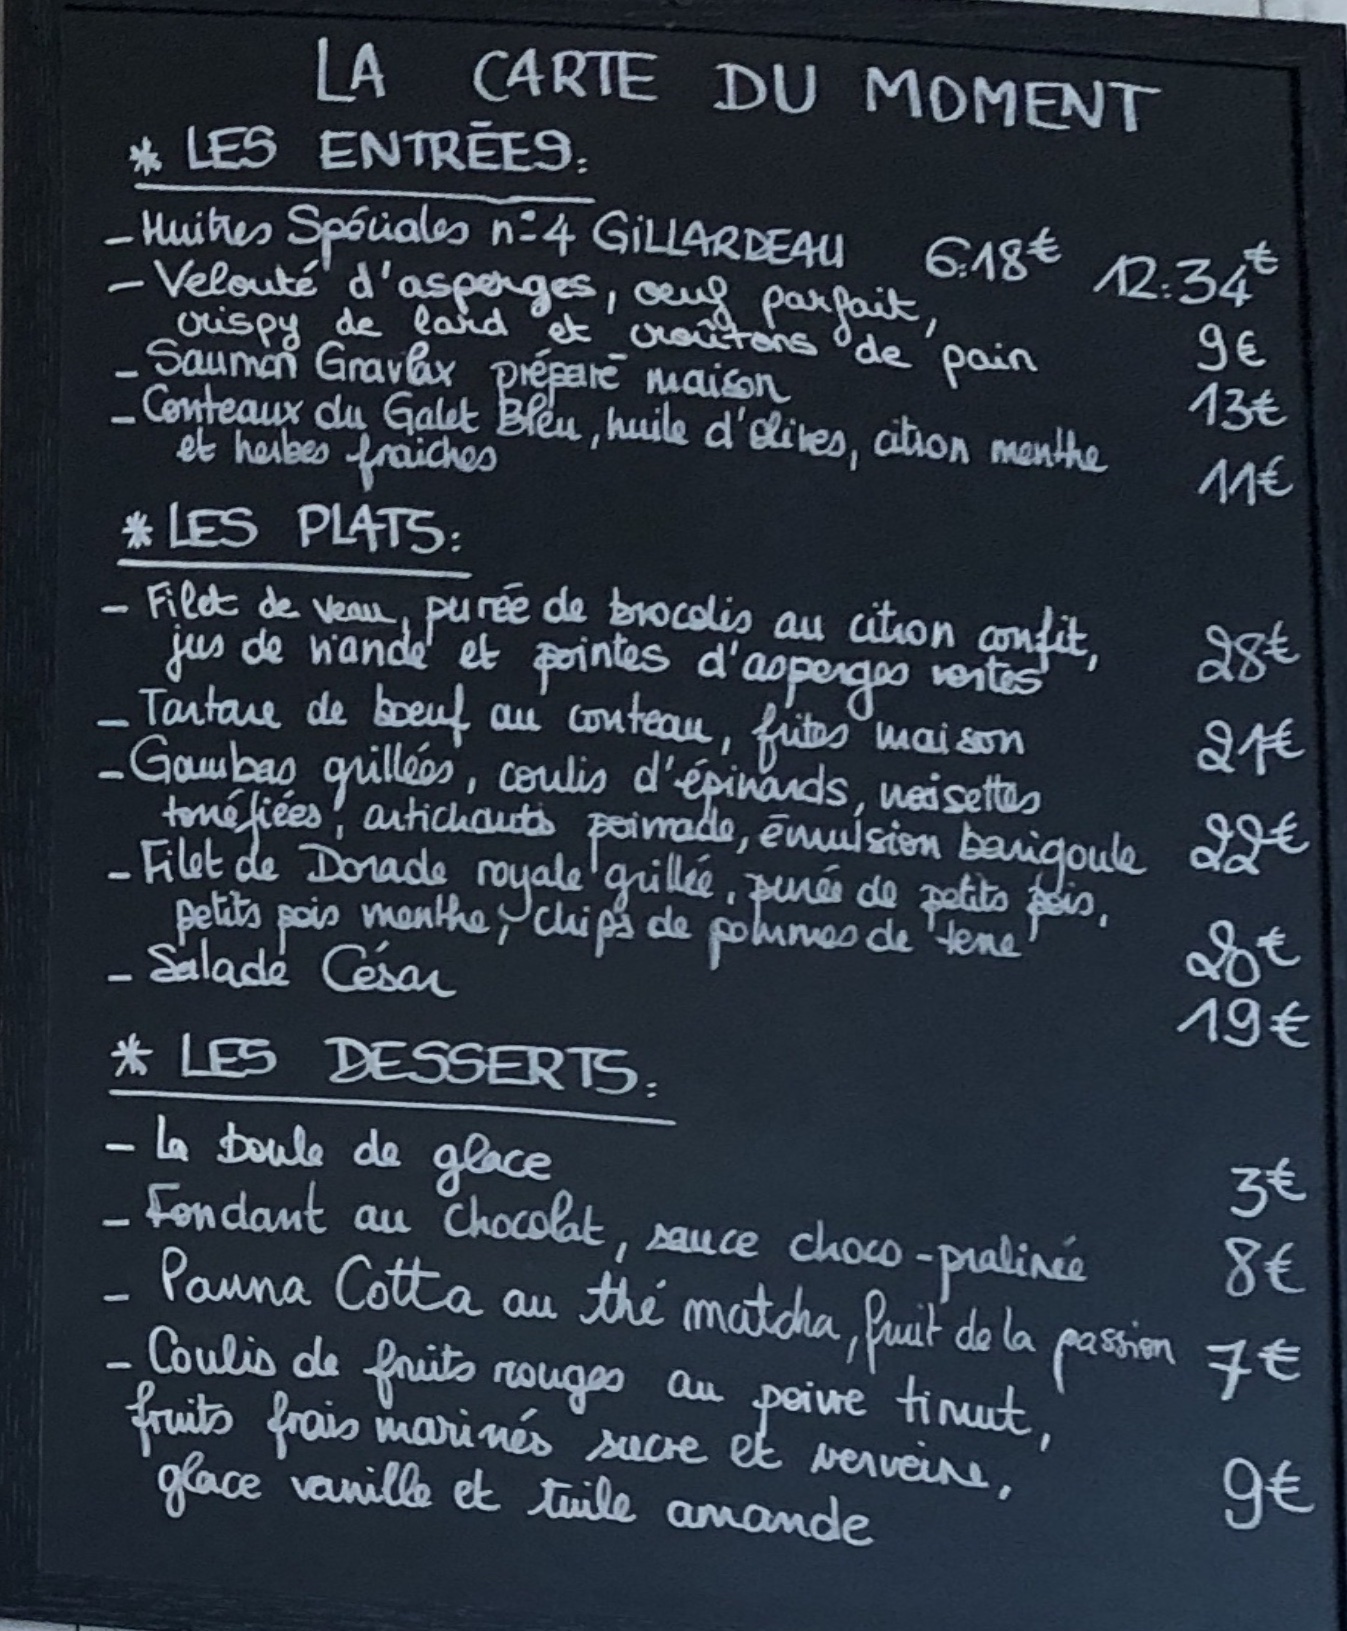 LA CARTE DU MOMENT
* LES ENTRÉES:
- Huitres Spéciales n°4 GILLARDEAU 6:18€ 12:34€
- Velouté d'asperges, œuf parfait,
crispy de lard et croûtons de pain 9€
- Saumon Gravlax préparé maison 13€
- Couteaux du Galet Bleu, huile d'olives, citron menthe
et herbes fraiches 11€
* LES PLATS:
- Filet de veau, purée de brocolis au citron confit,
jus de viande et pointes d'asperges vertes 28€
- Tartare de boeuf au couteau, frites maison 21€
- Gambas grillées, coulis d'épinards, noisettes
torréfiées, artichauts poivrade, émulsion barigoule 22€
- Filet de Dorade royale grillée, purée de petits pois,
petits pois menthe, chips de pommes de terre 20€
- Salade César 19€
* LES DESSERTS:
- La boule de glace 3€
- Fondant au chocolat, sauce choco-pralinée 8€
- Panna Cotta au thé matcha, fruit de la passion 7€
- Coulis de fruits rouges au poivre timut,
fruits frais marinés sucre et verveine,
glace vanille et tuile amande 9€